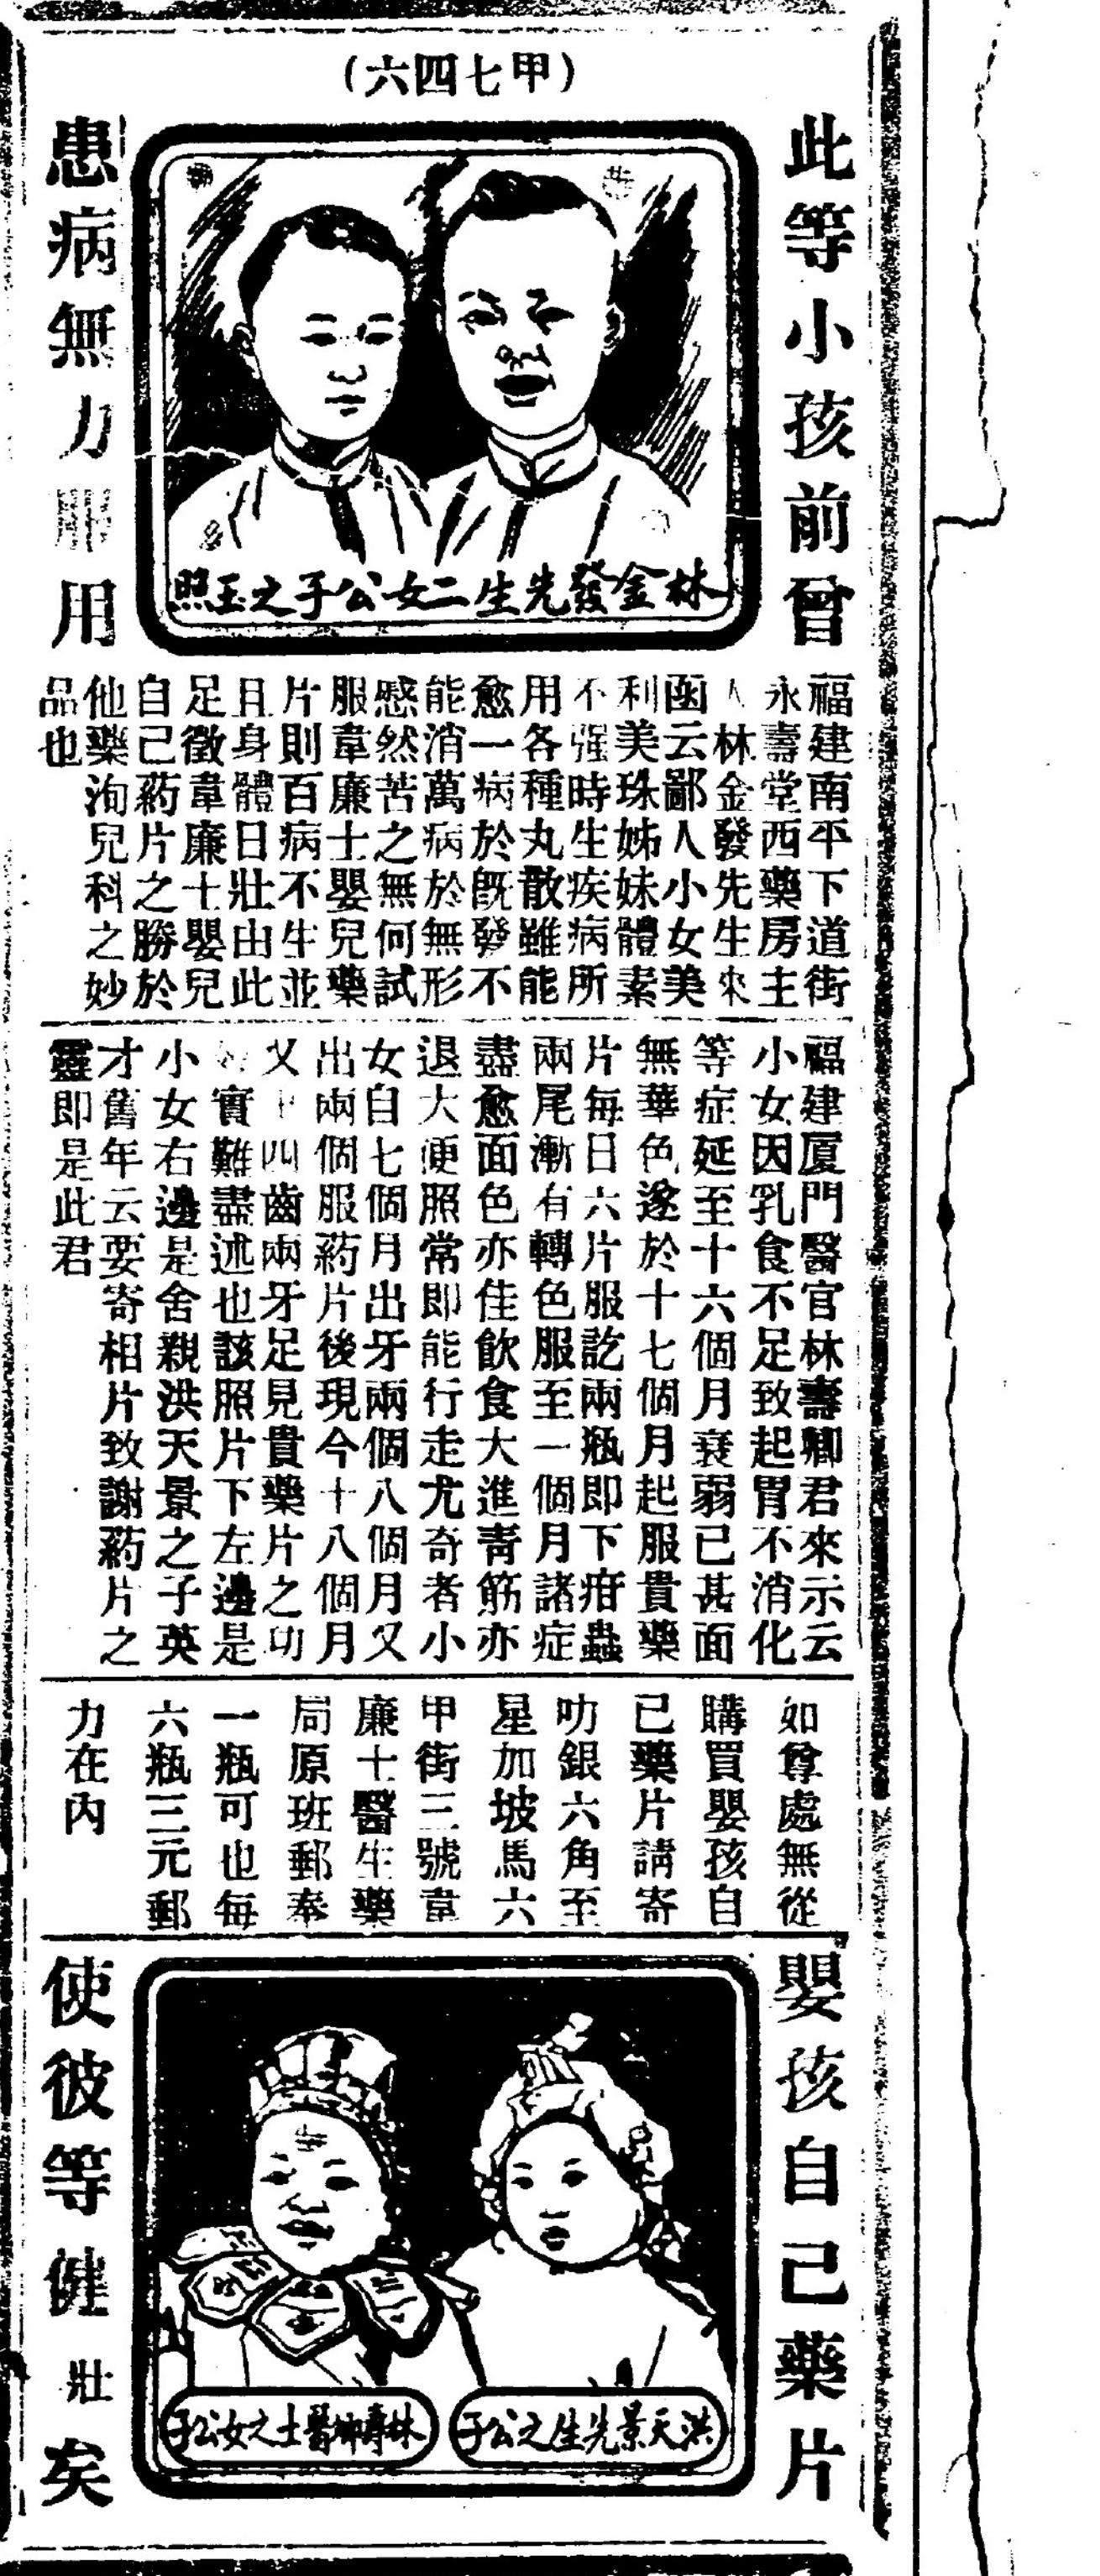 (六四七甲)
此等小孩前曾
患病無力 用
照玉之子公女二生先發金林
福建南平下道街
永壽堂西藥房主
人林金發先生來
函云鄙人小女美
利美珠姊妹體素
不强時生疾病所
用各種丸散雖能
愈一病於旣發不
能消萬病於無形
慼然苦之無何試
服韋廉士嬰兒藥
片則百病不生並
且身體日壯由此
足徵韋廉士嬰兒
自己葯片之勝於
他藥洵兒科之妙
品也
福建厦門醫官林壽卿君來示云
小女因乳食不足致起胃不消化
等症延至十六個月衰弱已甚面
無華色遂於十七個月起服貴藥
片每日六片服訖兩瓶即下疳蟲
兩尾漸有轉色服至一個月諸症
盡愈面色亦佳飲食大進靑筋亦
退大便照常即能行走尤奇者小
女自七個月出牙兩個八個月又
出兩個服葯片後現今十八個月
又十四齒兩牙足見貴藥片之功
實難盡述也該照片下左邊是
小女右邊是舍親洪天景之子英
才舊年云要寄相片致謝葯片之
靈即是此君
如尊處無從
購買嬰孩自
已藥片請寄
叻銀六角至
星加坡馬六
甲街三號韋
廉士醫生藥
局原班郵奉
一瓶可也每
六瓶三元郵
力在內
嬰孩自己藥片
使彼等健壯矣
子公之生先景天洪
子公女之士醫卿壽林